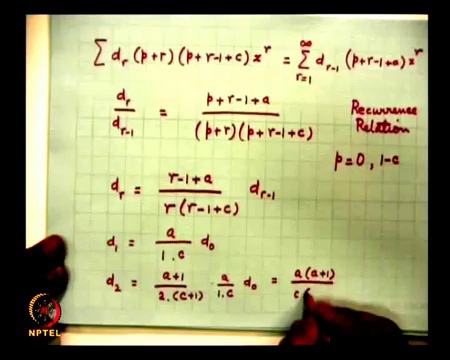 ∑ d_r (p+r)(p+r-1+c) x^r = ∑_{r=1}^{∞} d_{r-1} (p+r-1+a) x^r
d_r / d_{r-1} = (p+r-1+a) / ((p+r)(p+r-1+c))
Recurrence
Relation
p=0, 1-c
d_r = (r-1+a) / (r(r-1+c)) d_{r-1}
d_1 = a / (1.c) d_0
d_2 = (a+1) / (2.(c+1)) · a / (1.c) d_0 = a(a+1) / c(
NPTEL